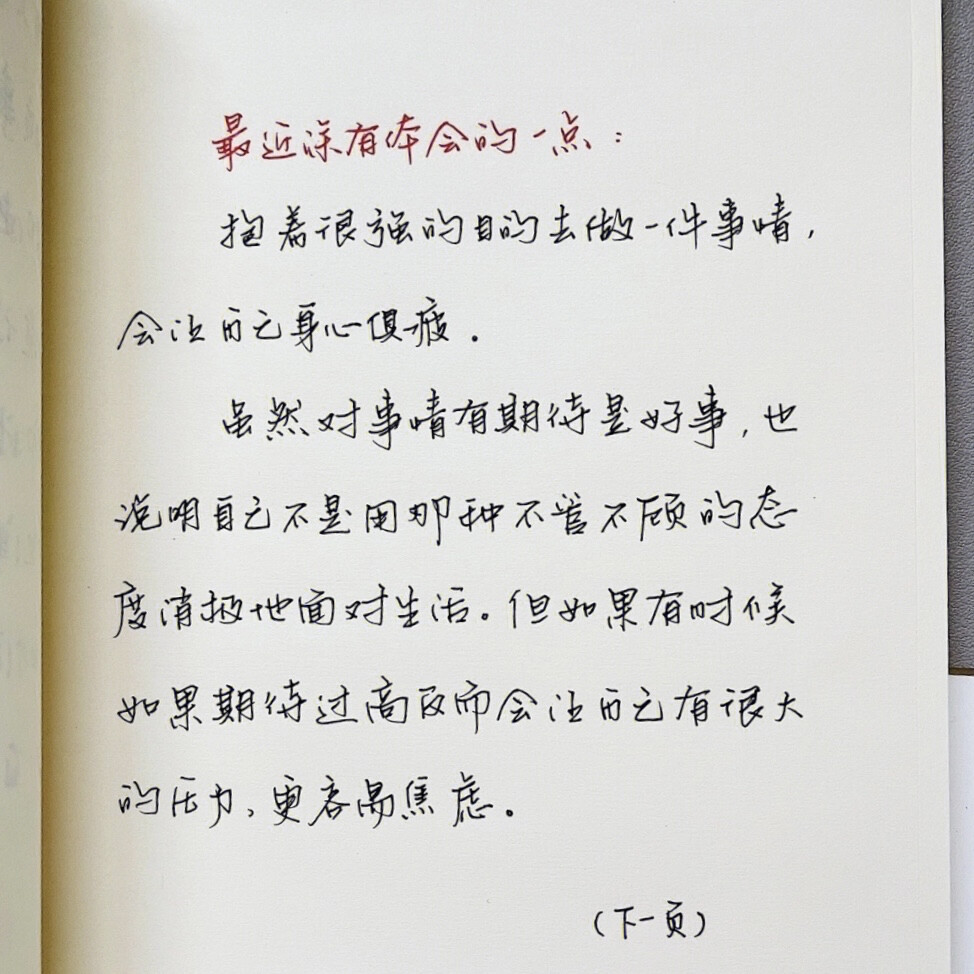 最近深有体会的一点：
抱着很强的目的去做一件事情，
会让自己身心俱疲.
虽然对事情有期待是好事,也
说明自己不是用那种不管不顾的态
度消极地面对生活。但如果有时候
如果期待过高反而会让自己有很大
的压力、更容易焦虑。
（下一页）